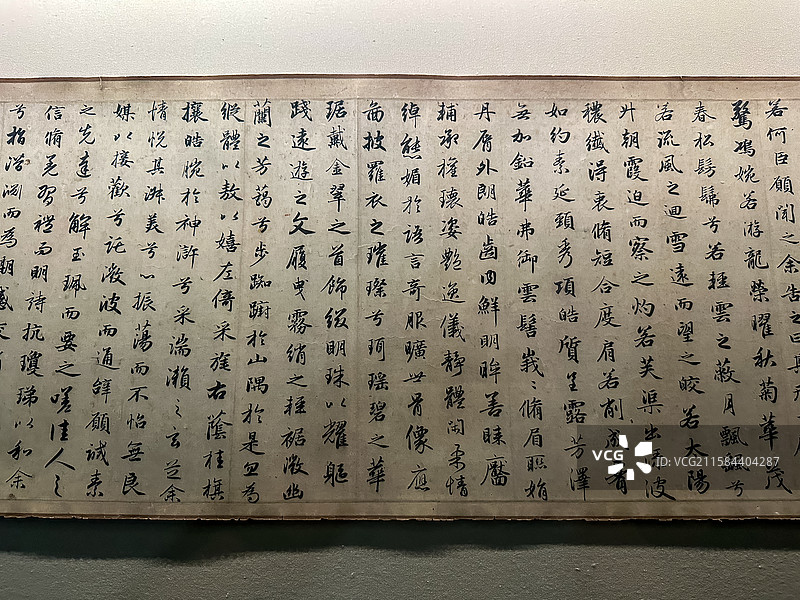 若何臣願聞之余告之曰其形
驚鴻婉若游龍榮曜秋菊華茂
春松髣髴兮若輕雲之蔽月飄兮
若流風之迴雪遠而望之皎若太陽
升朝霞迫而察之灼若芙渠出波
穠纖得衷脩短合度肩若削成有
如約素延頸秀項皓質呈露芳澤
無加鉛華弗御雲髻峩〻脩眉聯娟
丹脣外朗皓齒内鮮明眸善睞靨
輔承權瓌姿艷逸儀靜體閑柔情
綽態媚於語言奇服曠世骨像應
啚披羅衣之璀璨兮珥瑶碧之華
琚戴金翠之首飾綴明珠以耀軀
踐遠遊之文履曳霧綃之輕裾微幽
蘭之芳藹兮步踟躕於山隅於是忽焉
縱體以敖以嬉左倚采旄右蔭桂旗
攘皓腕於神滸兮采湍瀨之玄芝余
情悦其淑美兮心振蕩而不怡無良
媒以接歡兮託微波而通辭願誠素
之先達兮解玉珮而要之嗟佳人之
信脩羌習禮而明詩抗瓊珶以和余
兮指潛淵而為期感交
VCG
VCG ID:VCG211584404287